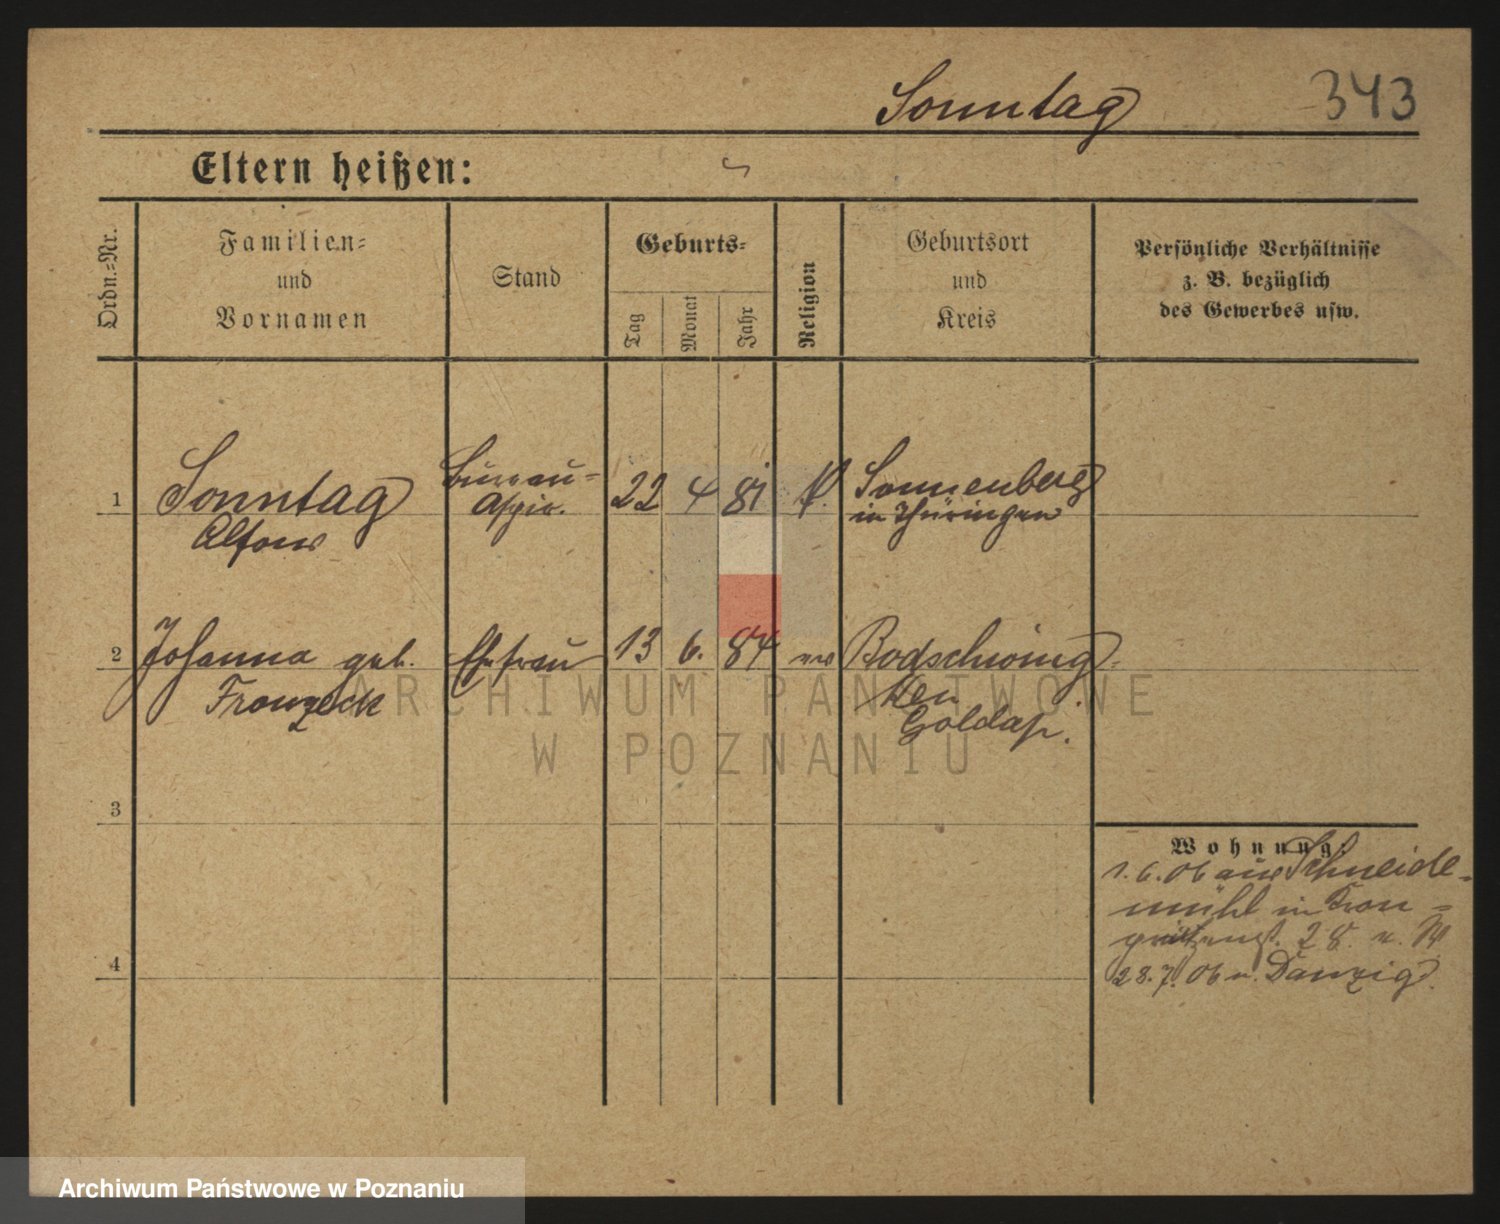 Sonntag 343
Eltern heißen:
Ordn.-Nr.
Familien-
und
Vornamen
Stand
Geburts-
Tag
Monat
Jahr
Religion
Geburtsort
und
Kreis
Persönliche Verhältnisse
z. B. bezüglich
des Gewerbes usw.
1 Sonntag Bureau- 22 4 81 Sonnenberg
Alfons Aspir. in Thüringen
2 Johanna geb. Ehefrau 13 6. 84 ev Bodschwing-
Franzeck ken
Goldap.
3
4
Wohnung:
1.6.06 aus Schneide-
mühl in Kron-
28.7.06 n. Danzig.
ARCHIWUM PAŃSTWOWE
W POZNANIU
Archiwum Państwowe w Poznaniu